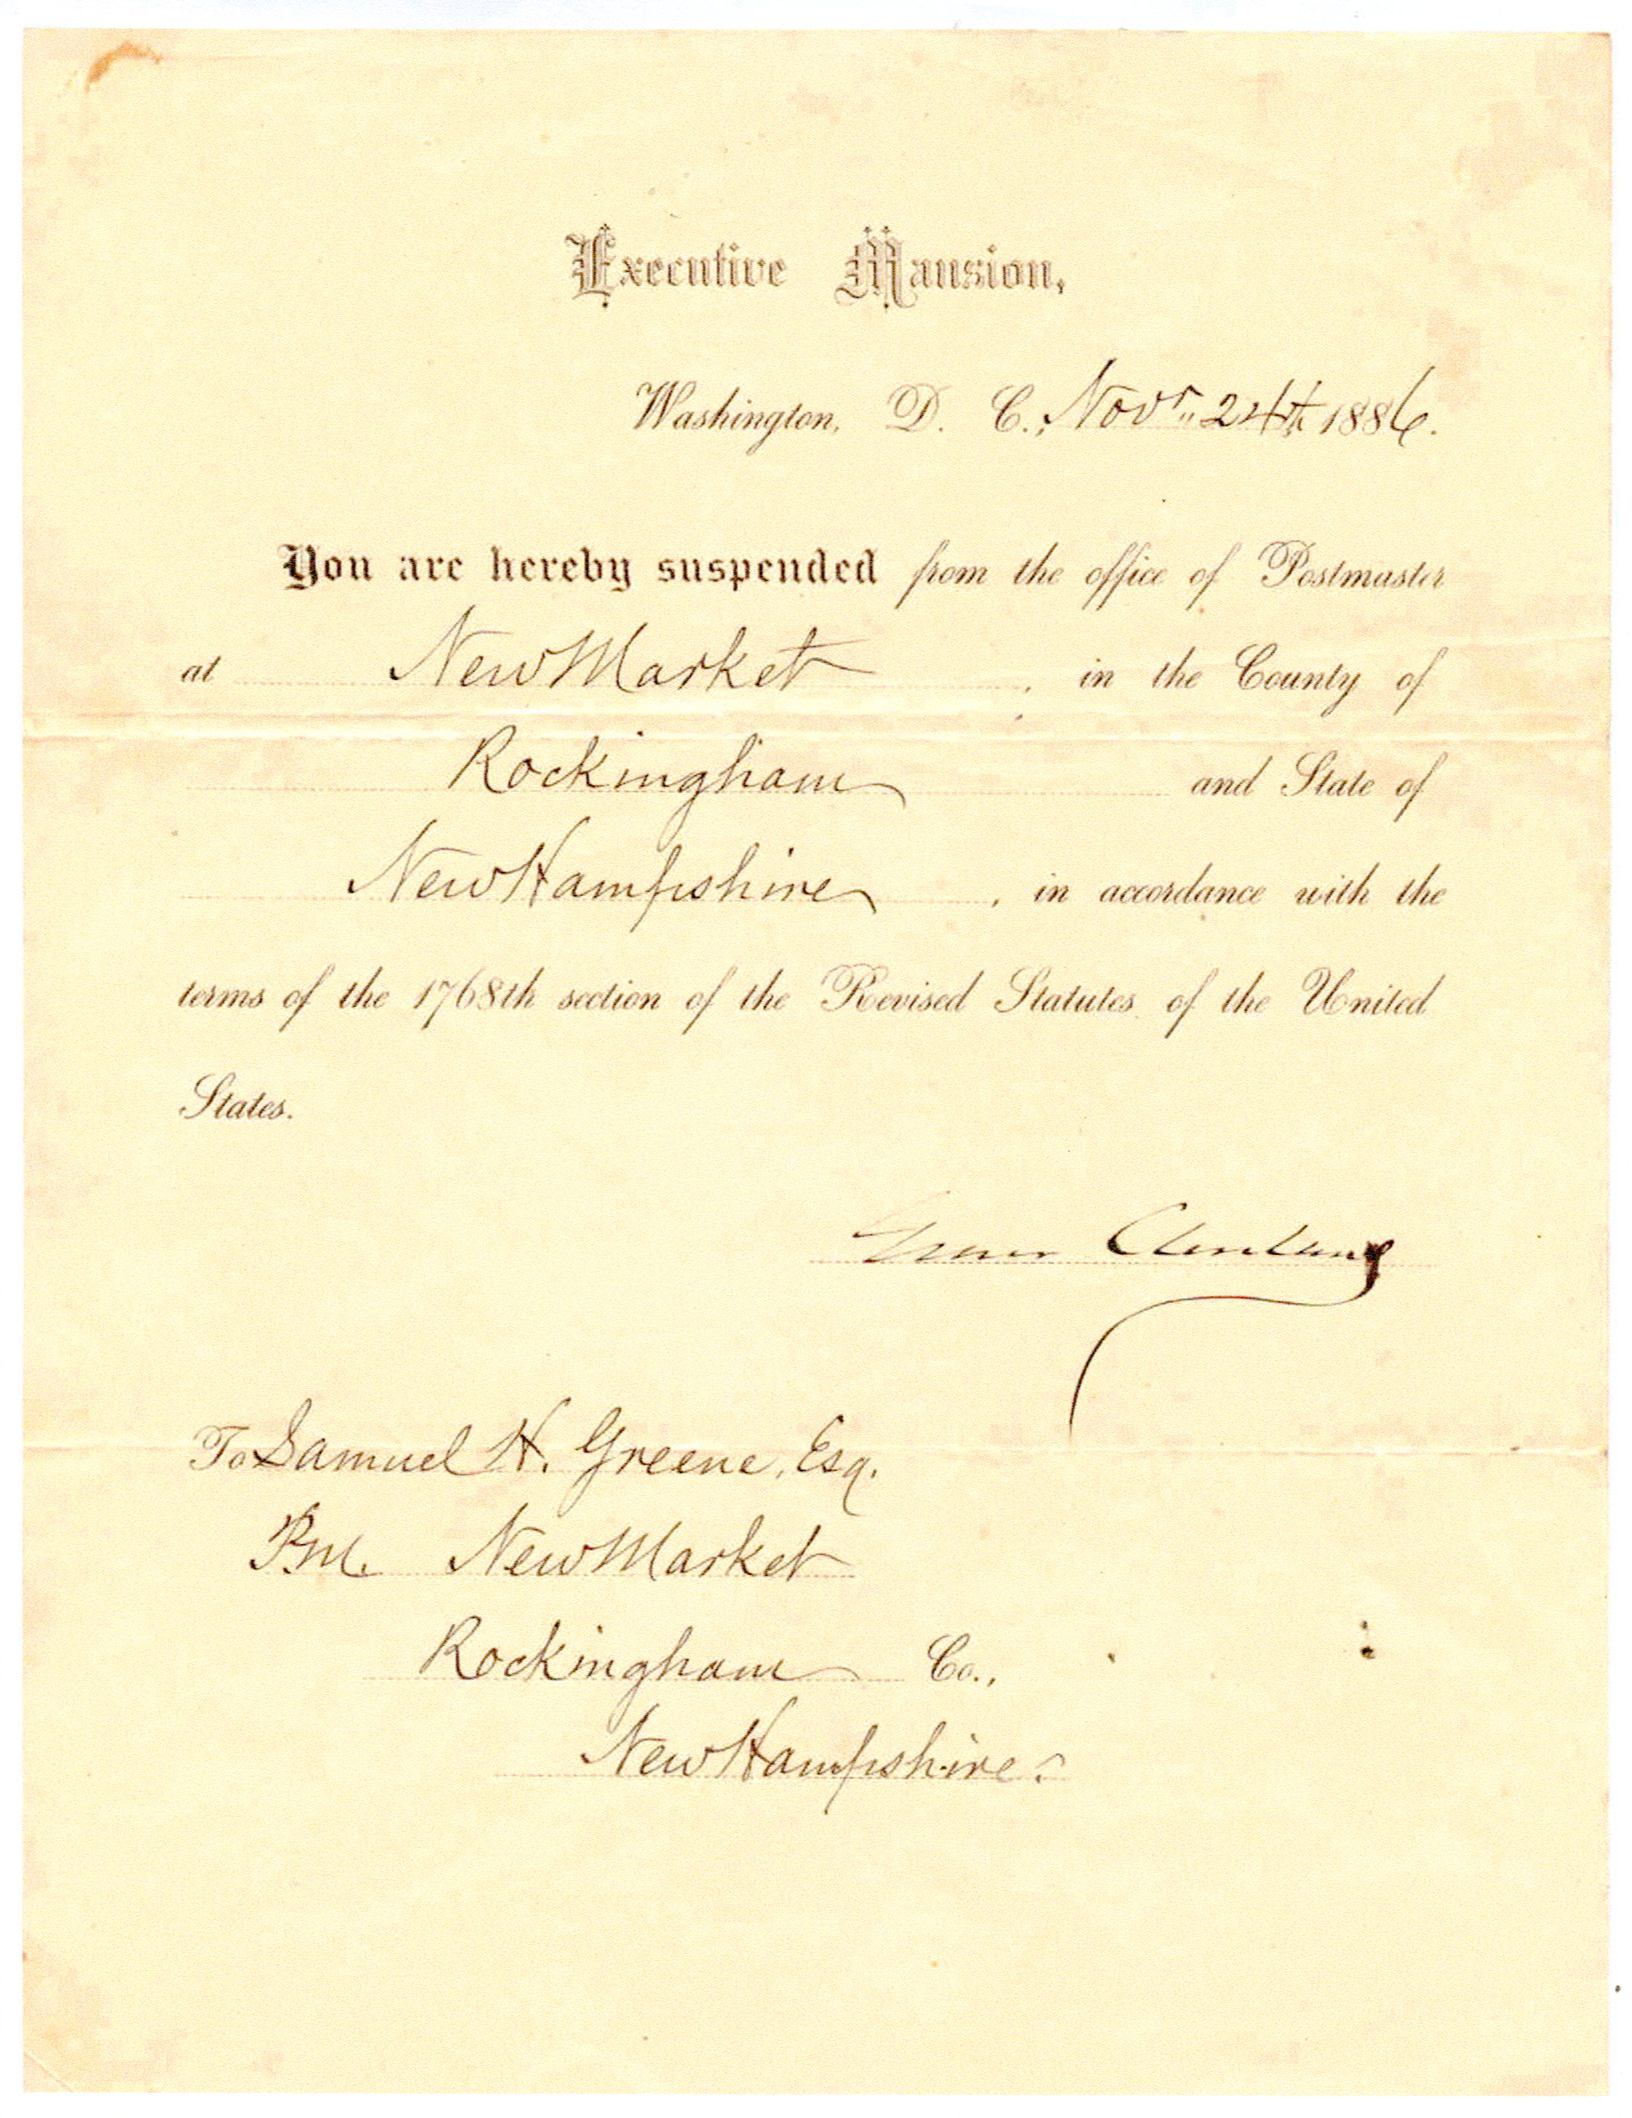 Executive Mansion,
Washington, D. C., Novr. 24th 1886.
You are hereby suspended from the office of Postmaster
at New Market, in the County of
Rockingham and State of
New Hampshire, in accordance with the
terms of the 1768th section of the Revised Statutes of the United
States.
Grover Cleveland
To Samuel H. Greene, Esq.
P.M. New Market
Rockingham Co.,
New Hampshire.